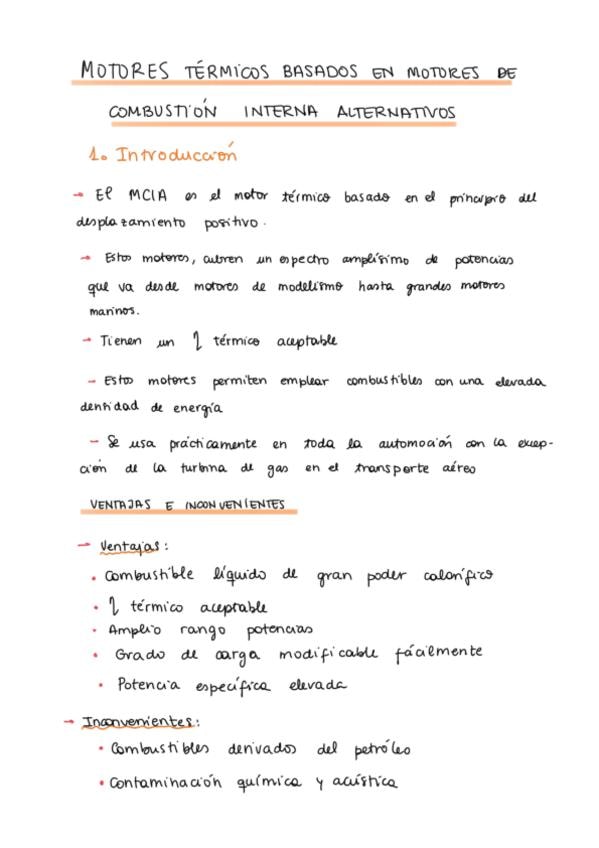 MOTORES TÉRMICOS BASADOS EN MOTORES DE
COMBUSTIÓN INTERNA ALTERNATIVOS
1. Introducción
→ El MCIA es el motor térmico basado en el principio del
desplazamiento positivo.
→ Estos motores, cubren un espectro amplísimo de potencias
que va desde motores de modelismo hasta grandes motores
marinos.
→ Tienen un η térmico aceptable
→ Estos motores permiten emplear combustibles con una elevada
densidad de energía
→ Se usa prácticamente en toda la automoción con la excep-
ción de la turbina de gas en el transporte aéreo
VENTAJAS E INCONVENIENTES
→ Ventajas:
• Combustible líquido de gran poder calorífico
• η térmico aceptable
• Amplio rango potencias
• Grado de carga modificable fácilmente
• Potencia específica elevada
→ Inconvenientes:
• Combustibles derivados del petróleo
• Contaminación química y acústica